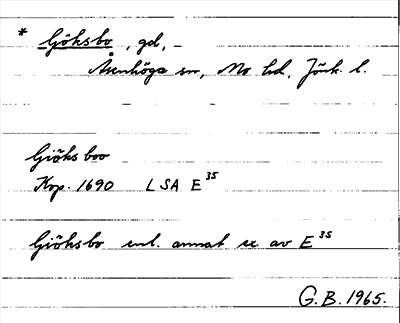 * Gjöksbo, gd,
Åsenhöga sn, Mo hd, Jönk. l.
Giöks boo
Kop. 1690 LSA E 35
Giöksbo enl. annat ex. av E 35
G.B. 1965.